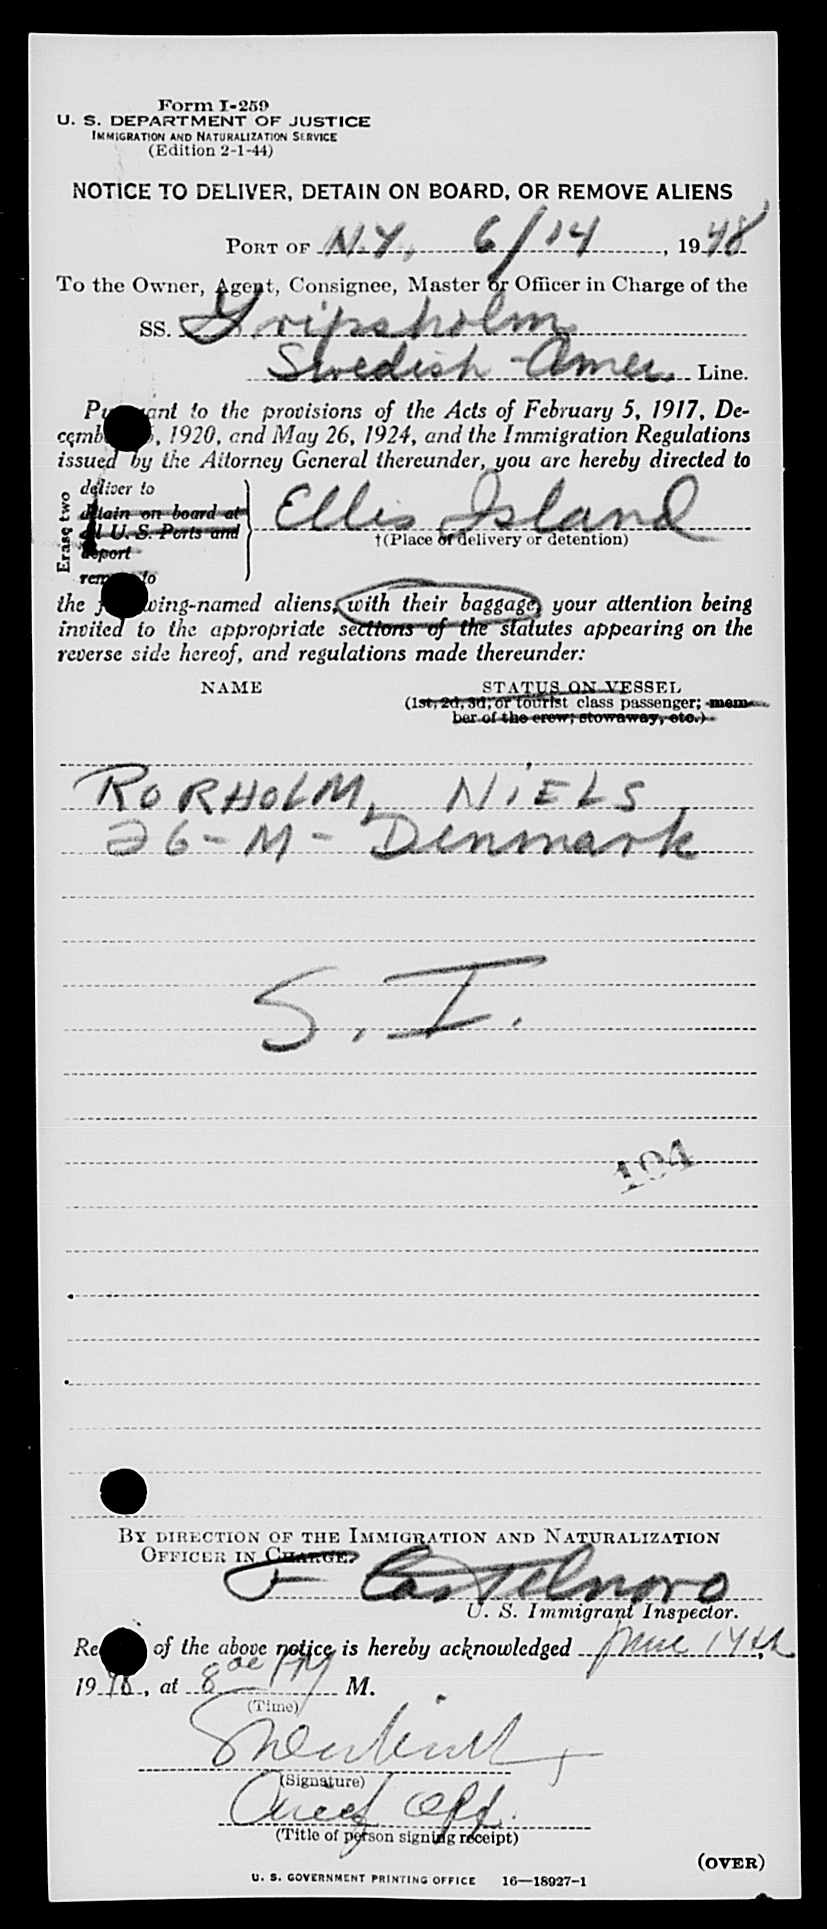 Form I-259
U. S. DEPARTMENT OF JUSTICE
IMMIGRATION AND NATURALIZATION SERVICE
(Edition 2-1-44)
NOTICE TO DELIVER, DETAIN ON BOARD, OR REMOVE ALIENS
PORT OF N.Y., 6/14, 1948
To the Owner, Agent, Consignee, Master or Officer in Charge of the
SS. Gripsholm
Swedish-Amer. Line.
Pursuant to the provisions of the Acts of February 5, 1917, De-
cember 5, 1920, and May 26, 1924, and the Immigration Regulations
issued by the Attorney General thereunder, you are hereby directed to
Erase two
deliver to
detain on board at
all U. S. Ports and
deport
remove to
Ellis Island
†(Place of delivery or detention)
the following-named aliens, with their baggage, your attention being
invited to the appropriate sections of the statutes appearing on the
reverse side hereof, and regulations made thereunder:
NAME STATUS ON VESSEL
(1st, 2d, 3d, or tourist class passenger; mem-
ber of the crew; stowaway, etc.)
RORHOLM, NIELS
26-M-Denmark
S. I.
194
BY DIRECTION OF THE IMMIGRATION AND NATURALIZATION
OFFICER IN CHARGE.
F Castelnovo
U. S. Immigrant Inspector.
Receipt of the above notice is hereby acknowledged June 14th,
1948, at 8 00 PM M.
(Time)
(Signature)
Chief Off.
(Title of person signing receipt)
(OVER)
U. S. GOVERNMENT PRINTING OFFICE 16—18927-1